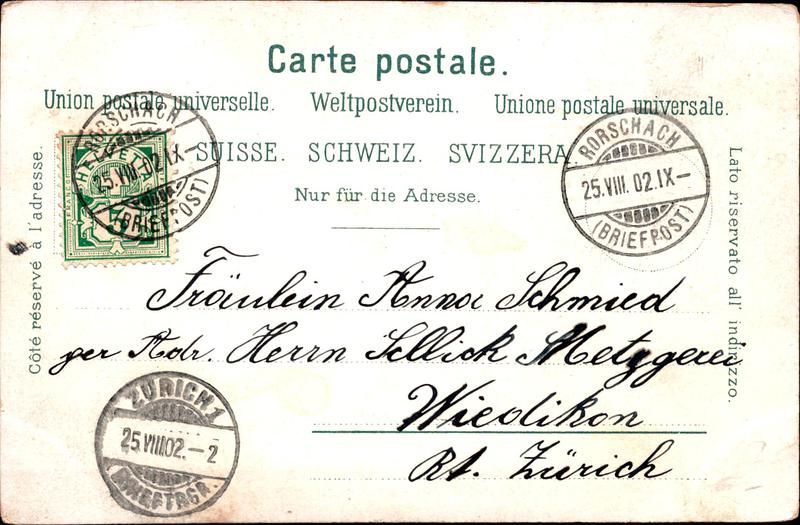 Carte postale.
Union postale universelle. Weltpostverein. Unione postale universale.
SUISSE. SCHWEIZ. SVIZZERA.
Nur für die Adresse.
Côté réservé à l'adresse.
Lato riservato all' indirizzo.
HELVETIA
FRANCO
RORSCHACH
25.VIII.02.IX-
(BRIEFPOST)
RORSCHACH
25.VIII.02.IX-
(BRIEFPOST)
Fräulein Anna Schmied
per Adr. Herrn Metzgerei
Wiedikon
Kt. Zürich
ZÜRICH 1
25.VIII.02.-2
BRIEFTRGR.